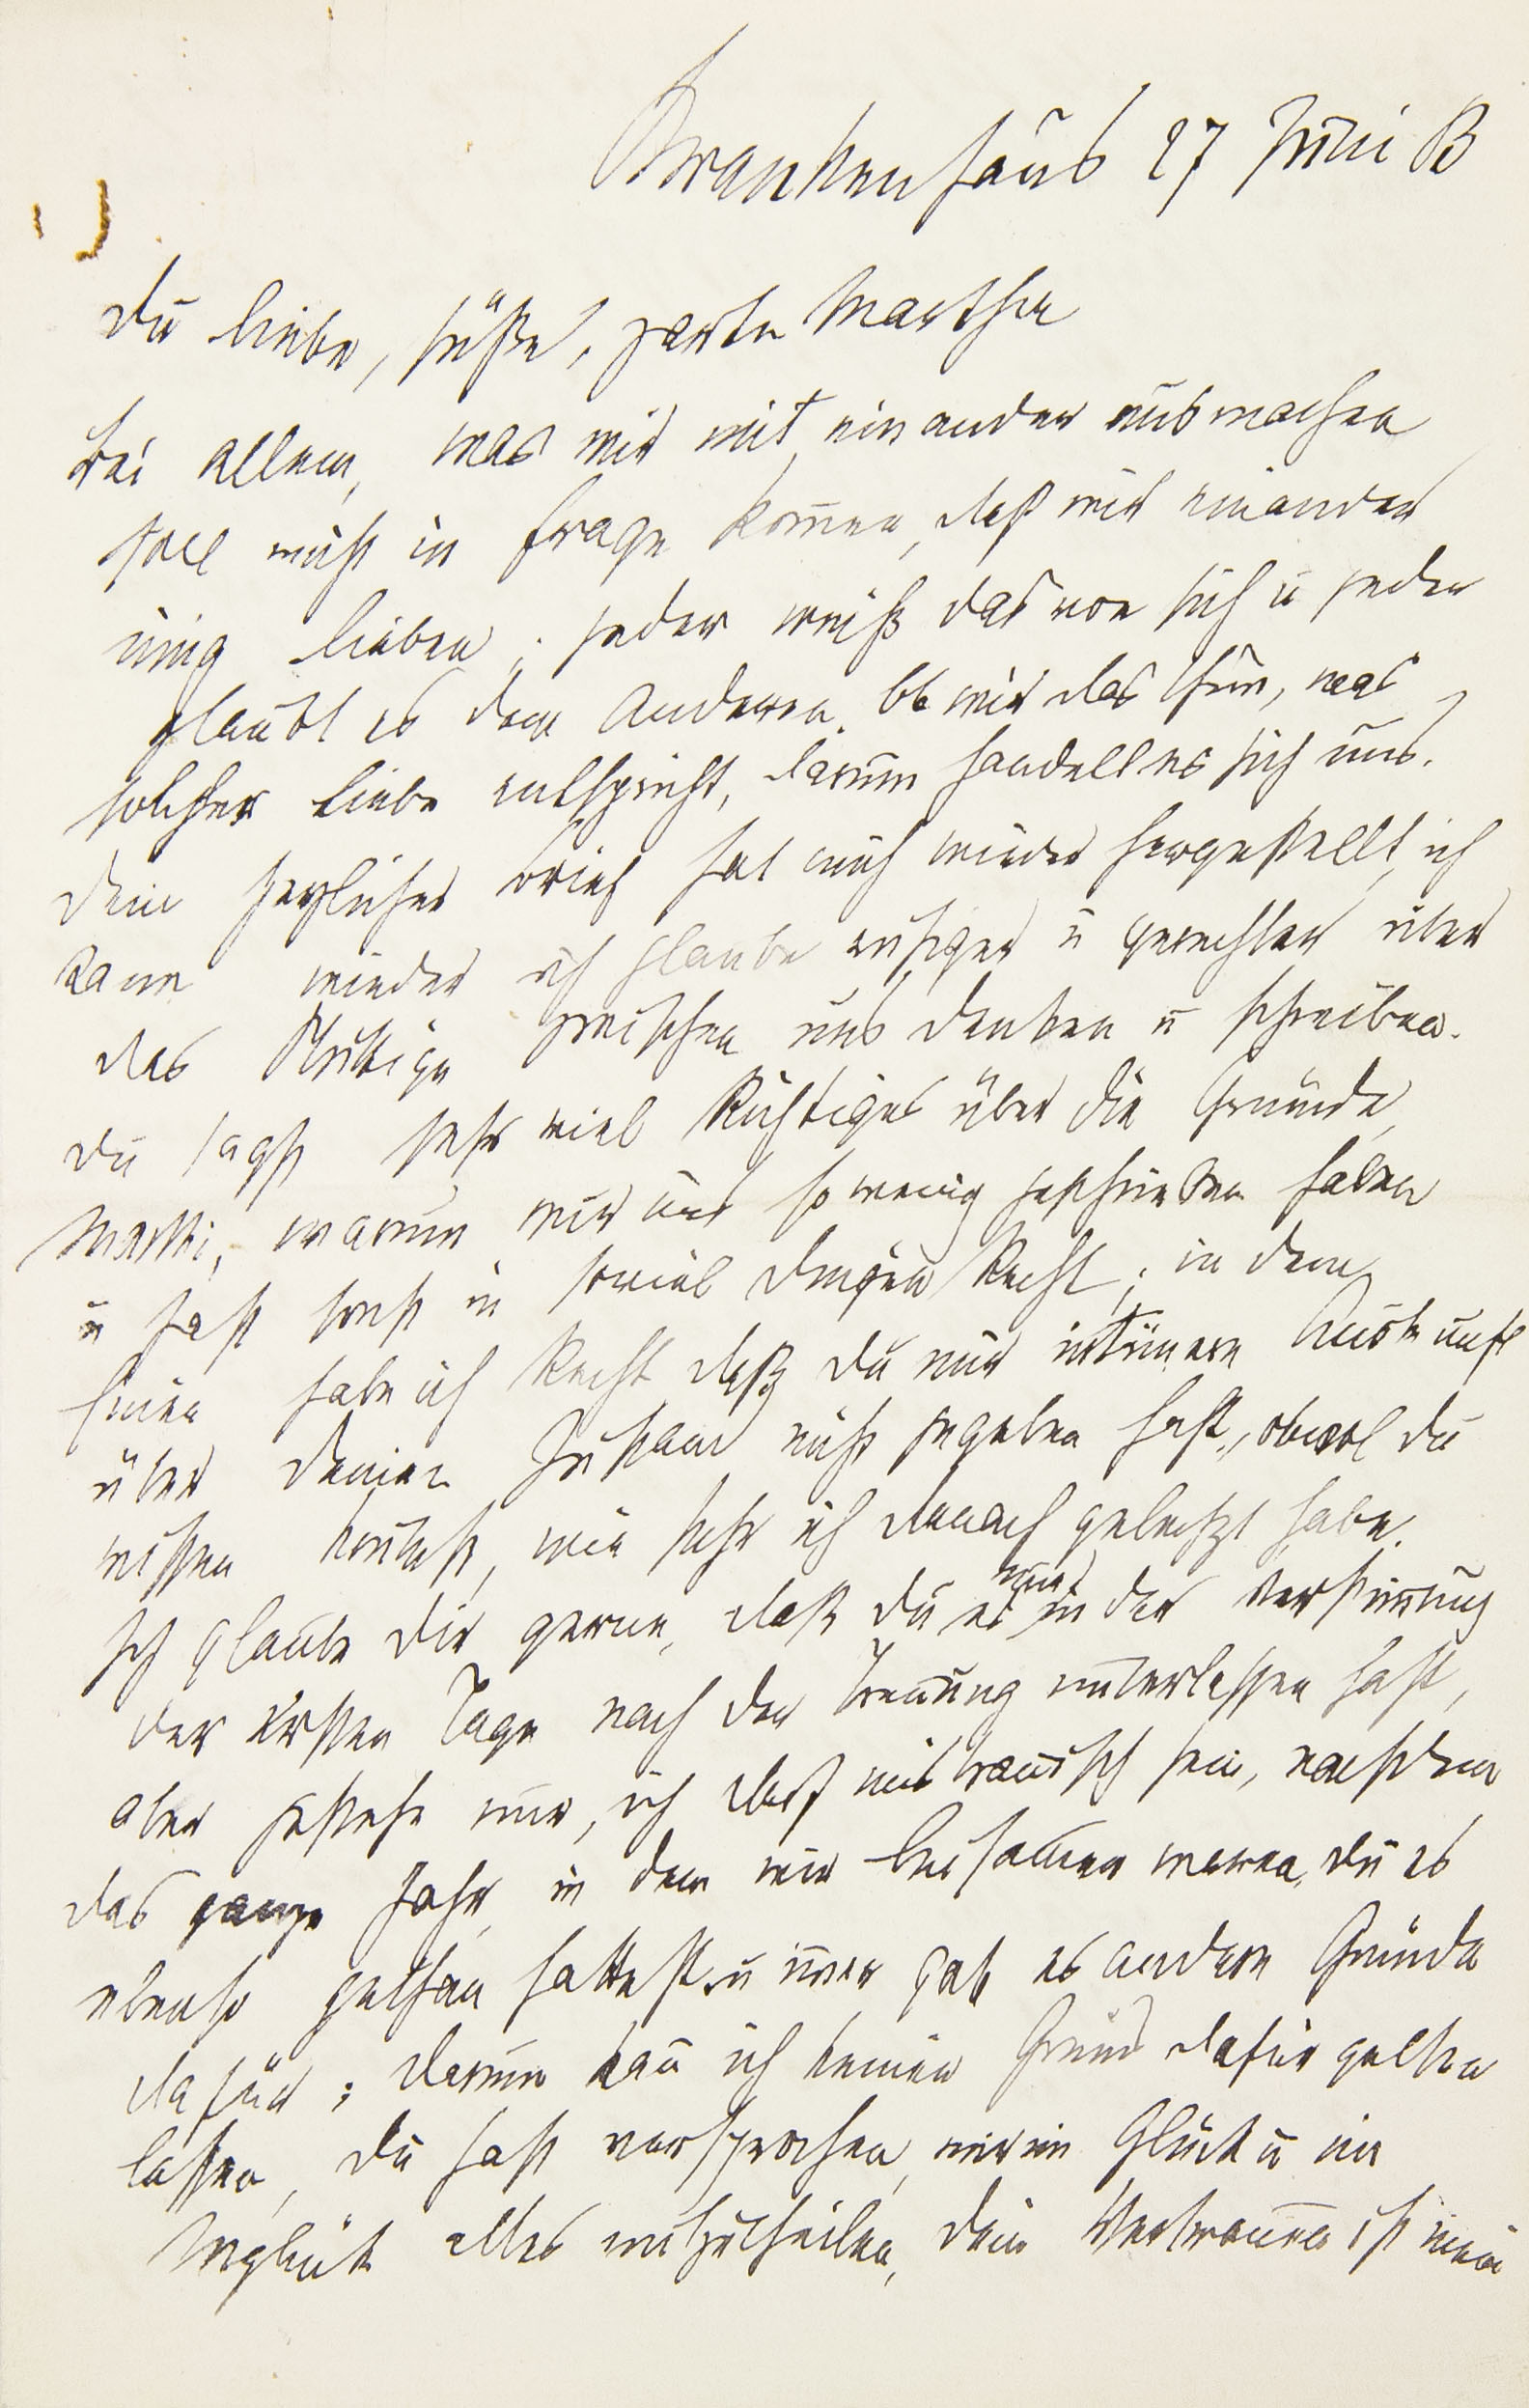 Krankenhaus 27 Juni 83
Du liebe, süße, zarte Martha
Bei allem, was wir mit einander ausmachen
soll nicht in Frage kom̄en, daß wir einander
in̄ig lieben; jeder weiß das von sich u jeder
glaubt es dem Anderen. Ob wir das thun, was
solcher Liebe entspricht, darum handelt es sich uns.
Dein herzlicher Brief hat mich wieder hergestellt, ich
kann wieder ich glaube ruhiger u gerechter über
das Strittige zwischen uns denken u schreiben.
Du sagst sehr viel Richtiges über die Gründe,
Marthi, warum wir uns so wenig geschrieben haben
u hast sonst in soviel Dingen Recht; in dem
Einen habe ich Recht daß Du mir intimere Auskunft
über Deinen Zustand nicht gegeben hast, obwol Du
wissen kon̄test, wie sehr ich danach gelechzt habe.
Ich glaube Dir gerne, daß Du es nur in der Verstim̄ung
der ersten Tage nach der Tren̄ung unterlassen hast,
aber gestehe mir, ich darf mistrauisch sein, nachdem
das ganze Jahr, in dem wir beisam̄en waren, Du es
ebenso gethan hattest u im̄er gab es andere Gründe
dafür; darum kan̄ ich keinen Grund dafür gelten
lassen, Du hast versprochen, mir im Glück u im
Unglück alles mitzutheilen, Dein Vertrauen ist mein